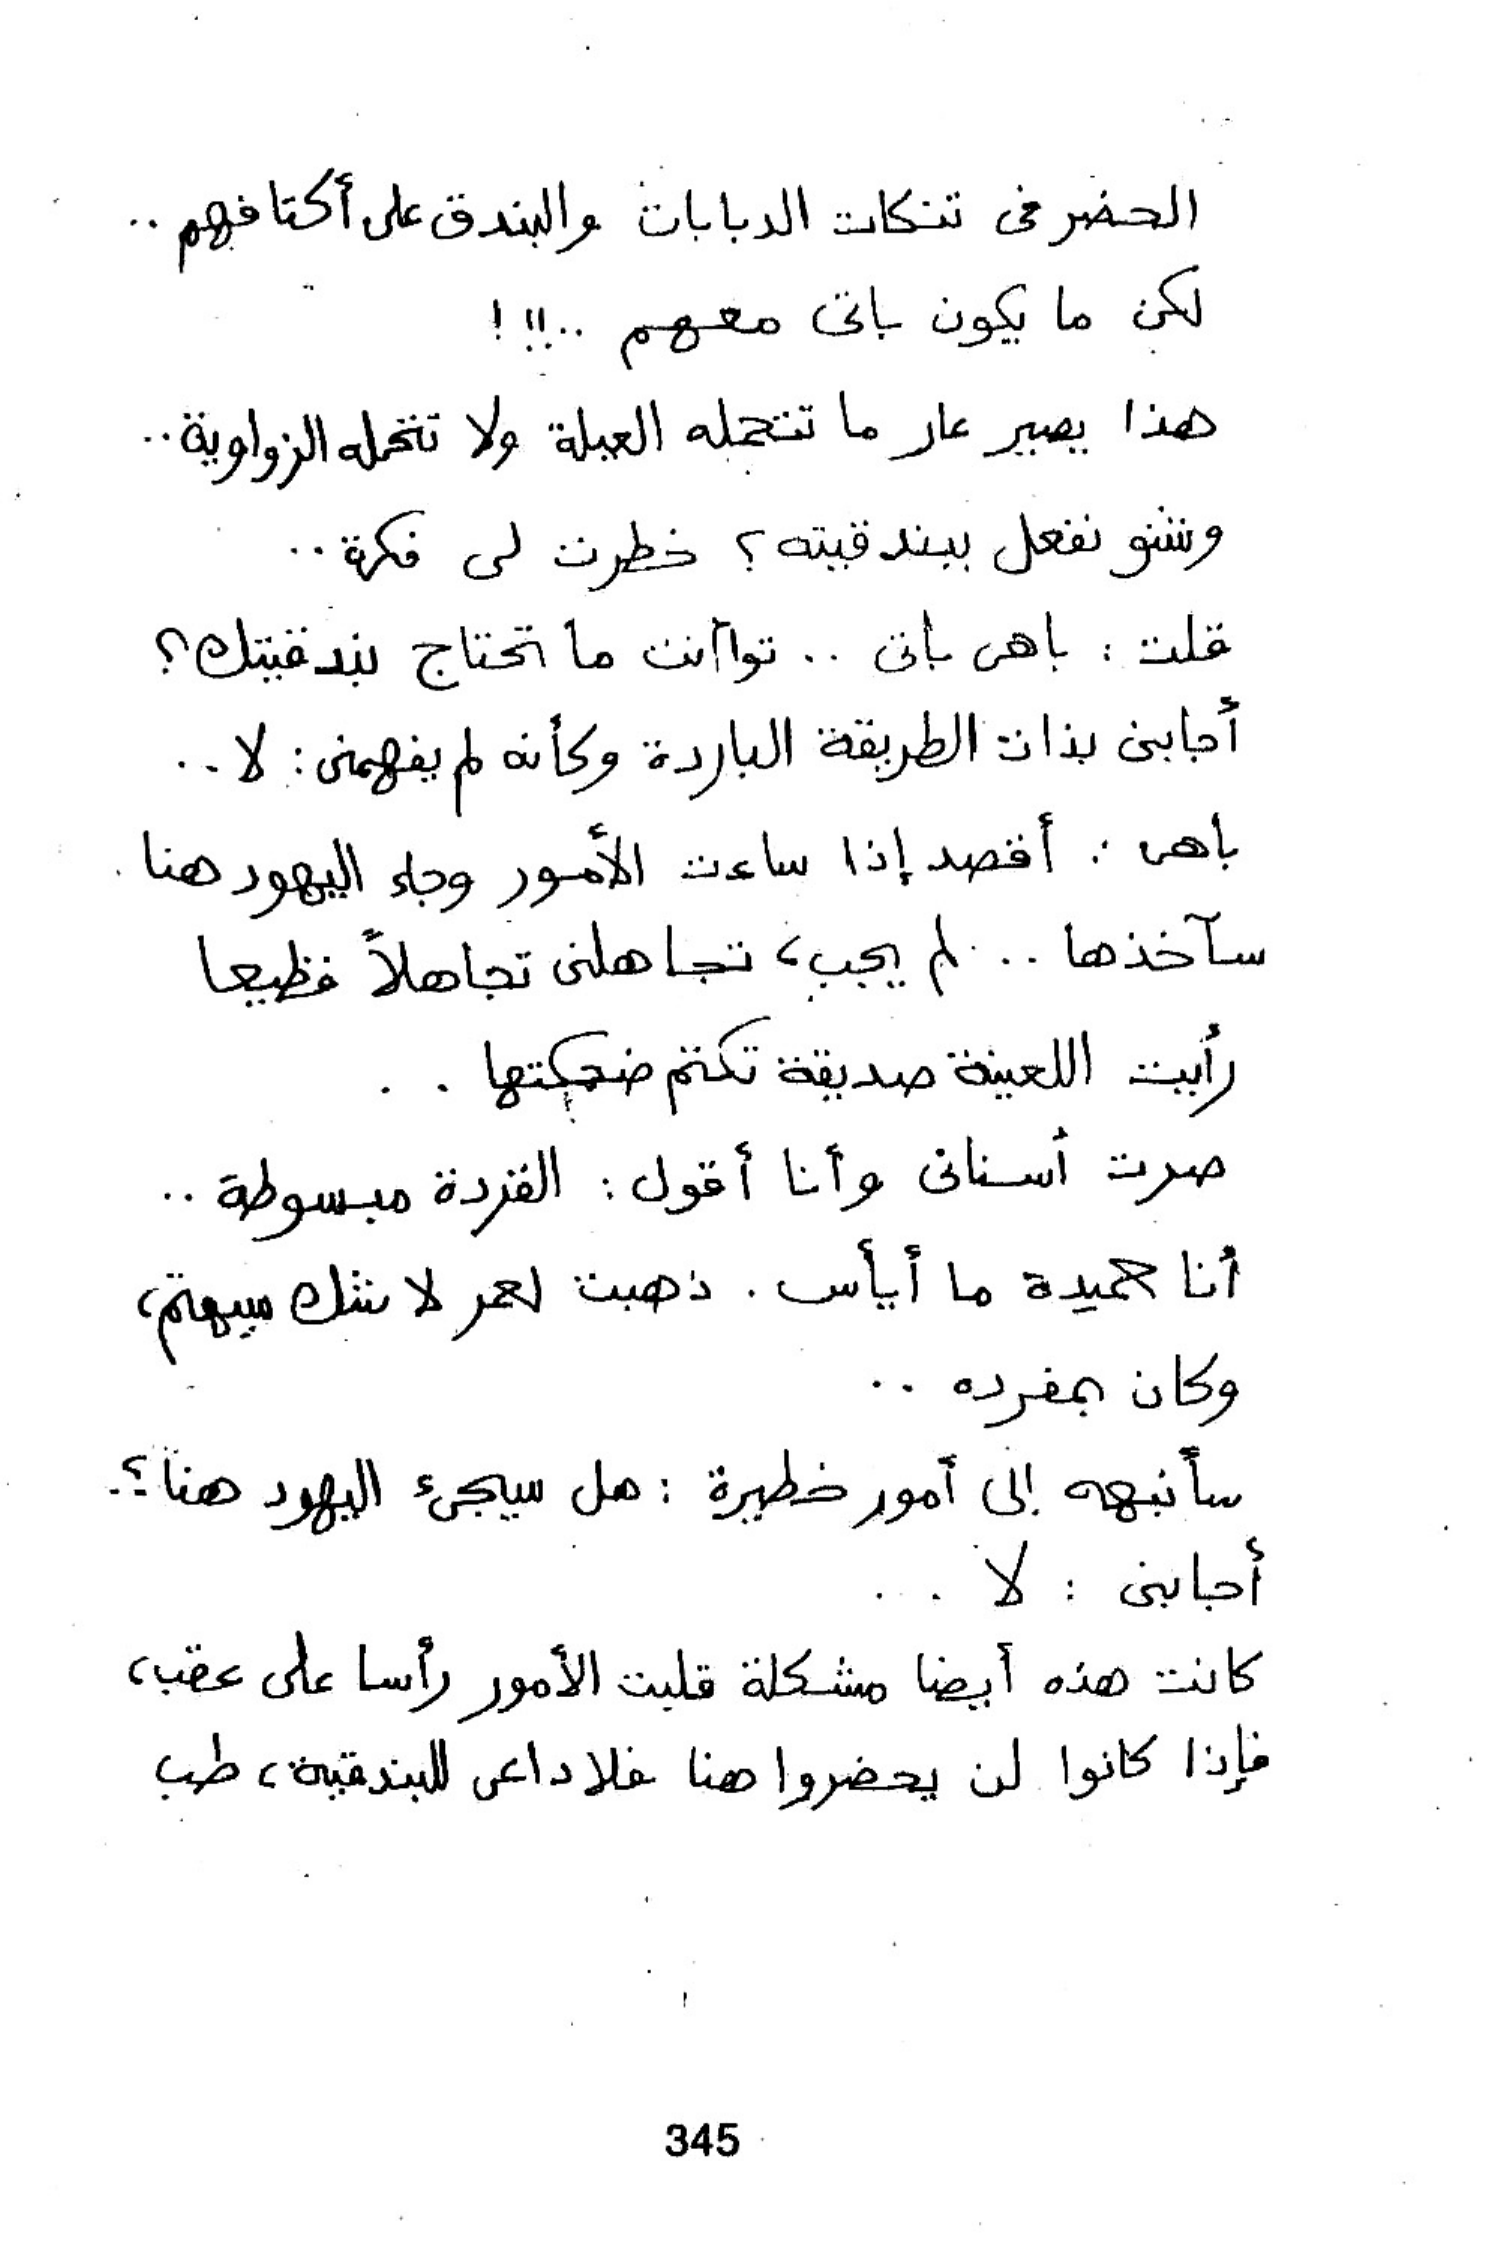 الحضر فى تنكات الدبابات والبندق على أكتافهم ..
لكن ما يكون باتى معهم ..!!!
هذا يصير عار ما تتحمله العيلة ولا تتحمله الزواوية ..
وشنو نفعل ببندقيته ؟ خطرت لى فكرة ..
قلت : باهى باتى .. توا أنت ما تحتاج بندقيتك ؟
أجابنى بذات الطريقة الباردة وكأنه لم يفهمنى : لا ..
باهى : أقصد إذا ساءت الأمور وجاء اليهود هنا .
سآخذها .. لم يجب ، تجاهلنى تجاهلاً فظيعا
رأيت اللعينة صديقة تكتم ضحكتها ..
صرت أسنانى وأنا أقول : القردة مبسوطة ..
أنا حميدة ما أيأس . ذهبت لعمر لا شك سيهتم ،
وكان بمفرده ..
سأنبهه إلى أمور خطيرة : هل سيجىء اليهود هنا ؟.
أجابنى : لا ...
كانت هذه أيضا مشكلة قلبت الأمور رأسا على عقب ،
فإذا كانوا لن يحضروا هنا فلا داعى للبندقية ، طب
345